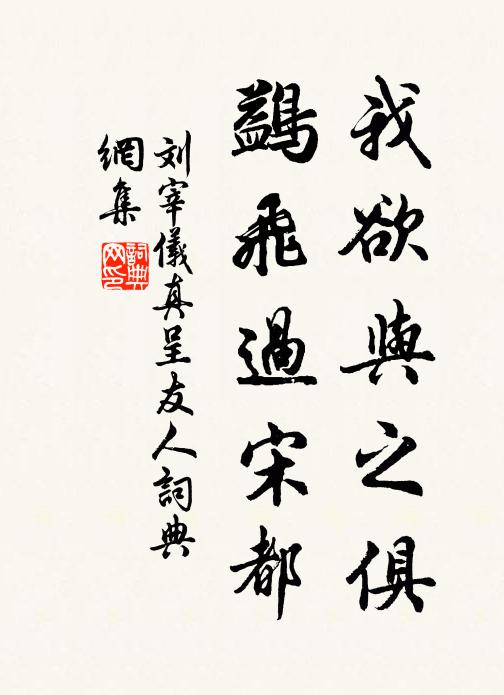 我欲與之俱
鷁飛過宋都
刘宰儀真呈友人詞典
網集
詞典网印